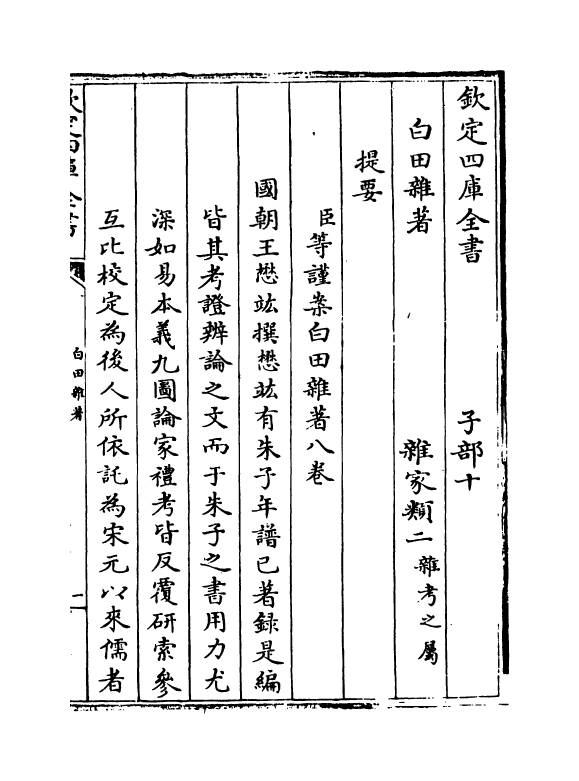 欽定四庫全書　子部十
白田雜著　雜家類二雜考之屬
提要
臣等謹案白田雜著八卷
國朝王懋竑撰懋竑有朱子年譜已著録是編
皆其考證辨論之文而于朱子之書用力尤
深如易本義九圖論家禮考皆反覆研索參
互比校定為後人所依託為宋元以來儒者
欽定四庫全書
白田雜著